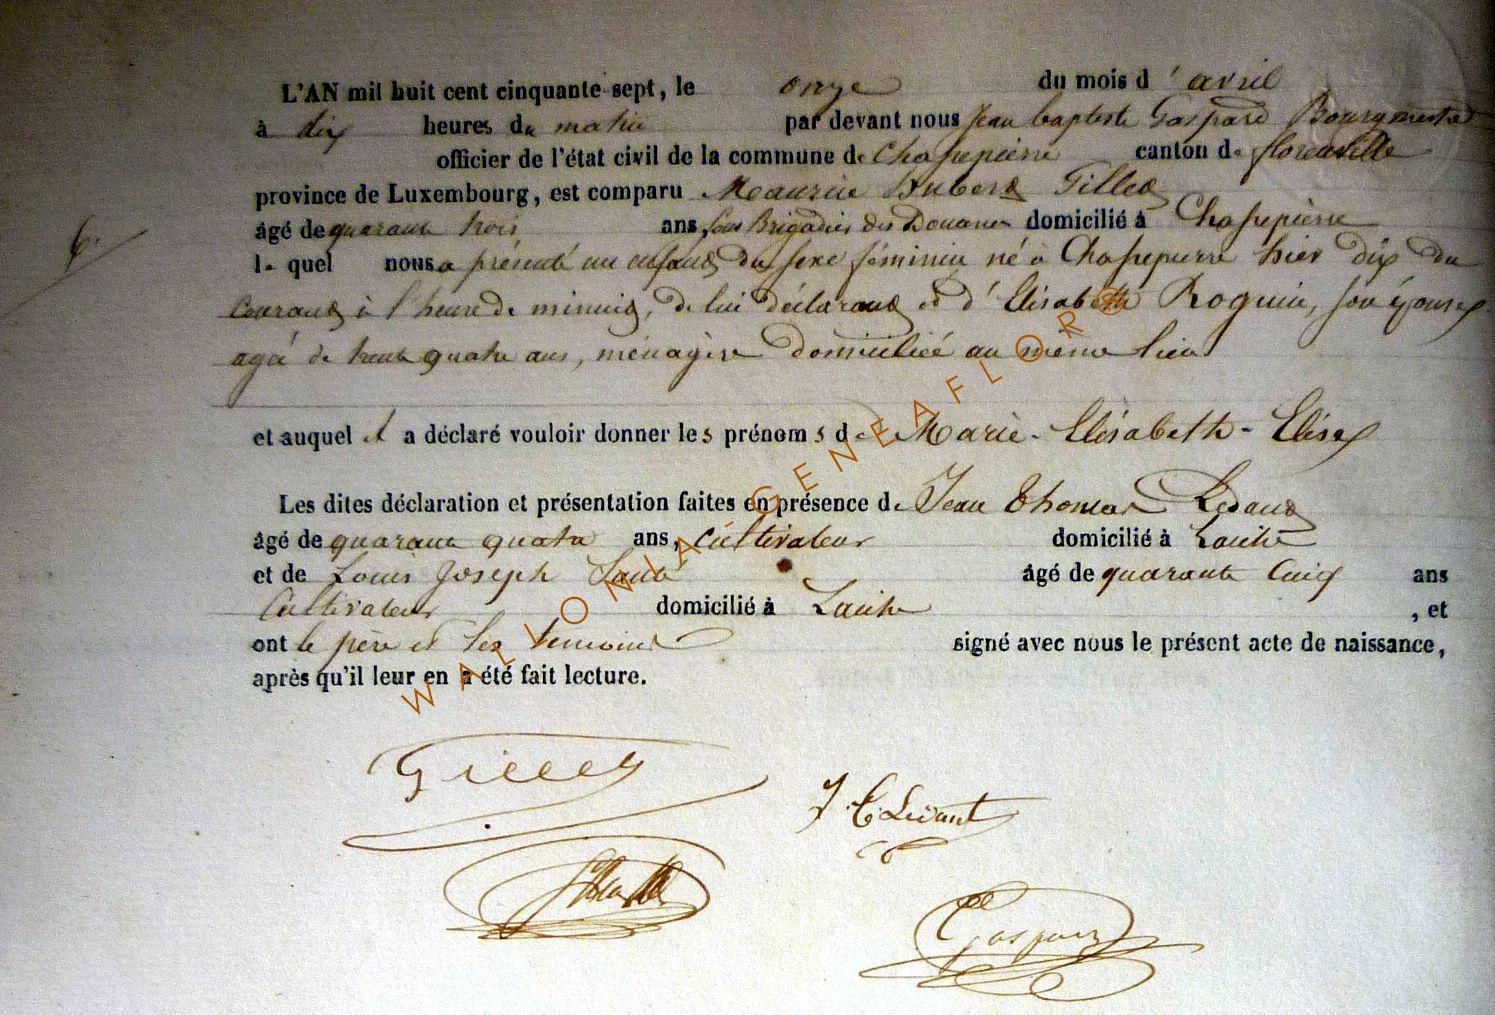 L'AN mil huit cent cinquante sept, le onze du mois d'avril
à dix heures du matin par devant nous Jean baptiste Gaspard Bourgmestre
officier de l'état civil de la commune de Chassepierre canton de florenville
province de Luxembourg, est comparu Maurice Hubert Gilles
âgé de quarante trois ans, sous Brigadier des Douanes domicilié à Chassepierre
6.
lequel nous a présenté un enfant du sexe féminin né à Chassepierre hier dix du
courant à l'heure de minuit, de lui déclarant et d'Elisabeth Roguin, son épouse
agé de trente quatre ans, ménagère domiciliée au même lieu
et auquel il a déclaré vouloir donner les prénoms de Marie-Elisabeth-Elise
Les dites déclaration et présentation faites en présence de Jean Thomas
âgé de quarante quatre ans, cultivateur domicilié à Laiche
et de Louis Joseph âgé de quarante cinq ans
Cultivateur domicilié à Laiche, et
ont le père et les temoins signé avec nous le présent acte de naissance,
après qu'il leur en a été fait lecture.
WALLONIA GENEAFLOR®
Gilles
J. T.
Gaspard